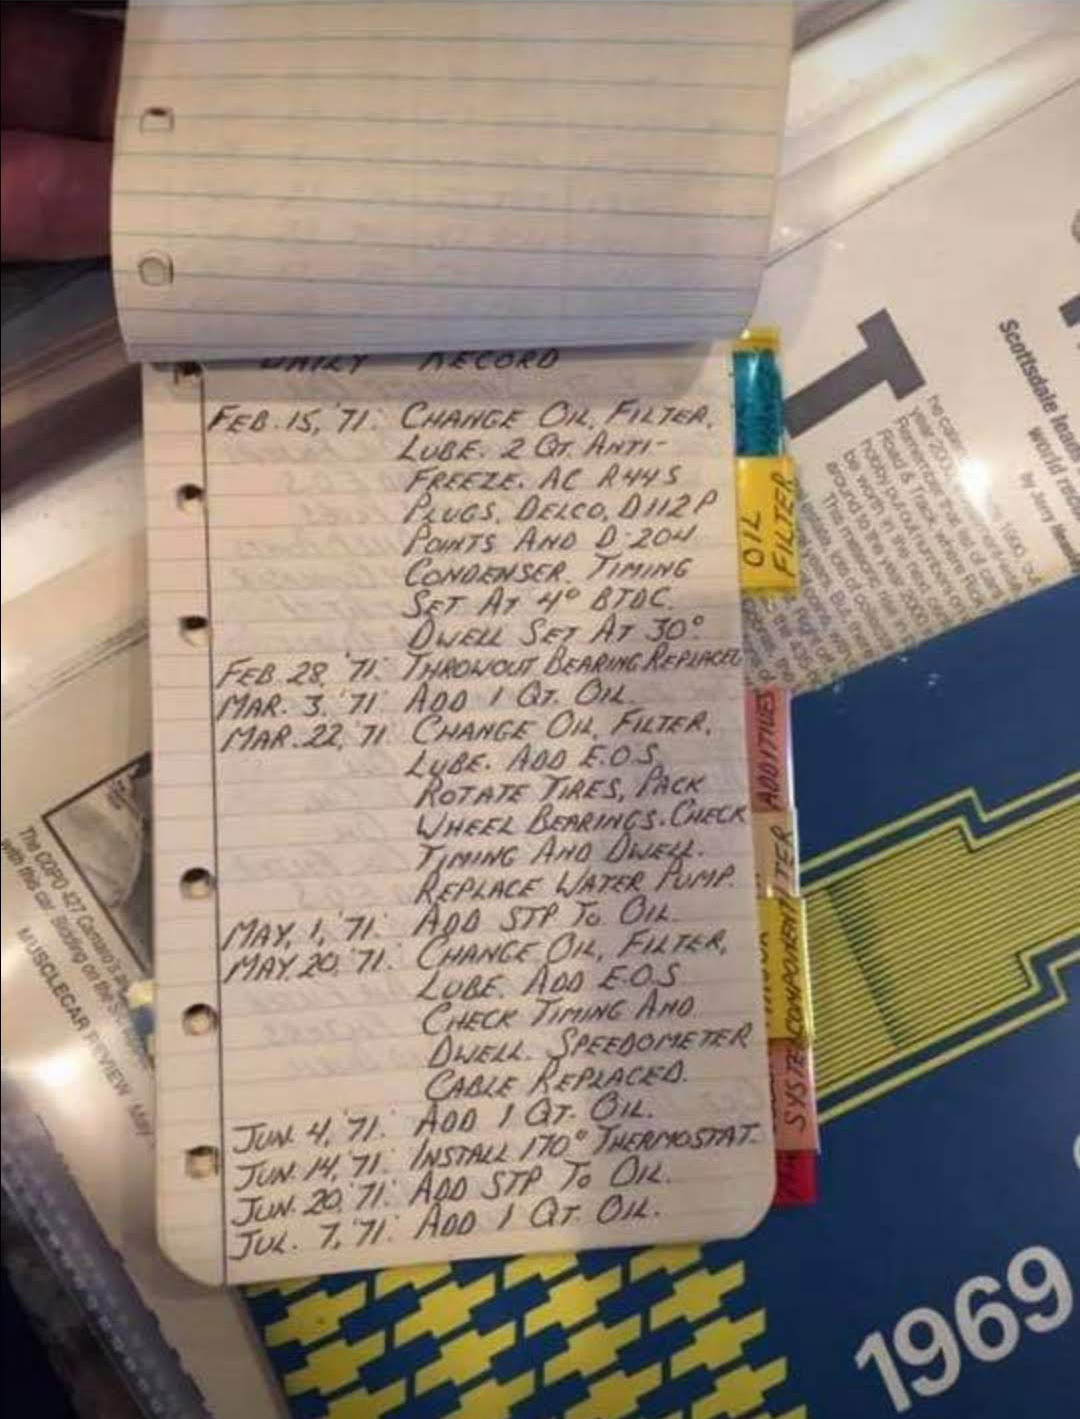 DAILY RECORD
FEB. 15, '71: CHANGE OIL, FILTER,
LUBE. 2 QT. ANTI-
FREEZE. AC R44S
PLUGS, DELCO, D112P
POINTS AND D-204
CONDENSER. TIMING
SET AT 4° BTDC.
DWELL SET AT 30°
FEB. 28 '71: THROWOUT BEARING REPLACED
MAR. 3, '71 ADD 1 QT. OIL.
MAR. 22, '71 CHANGE OIL, FILTER,
LUBE. ADD E.O.S.
ROTATE TIRES, PACK
WHEEL BEARINGS. CHECK
TIMING AND DWELL.
REPLACE WATER PUMP.
MAY, 1, '71: ADD STP TO OIL.
MAY. 20, '71: CHANGE OIL, FILTER,
LUBE. ADD E.O.S
CHECK TIMING AND
DWELL. SPEEDOMETER
CABLE REPLACED.
JUN. 4, '71: ADD 1 QT. OIL.
JUN. 14, '71: INSTALL 170° THERMOSTAT.
JUN. 20, '71: ADD STP TO OIL.
JUL. 7, '71: ADD 1 QT. OIL.
OIL
FILTER
ADDITIVES
COMPONENT
SYSTEM
T
Scottsdale
world
by Jerry
The COPO 427 Camaro's
with this car. Sliding on the
MUSCLECAR REVIEW
1969